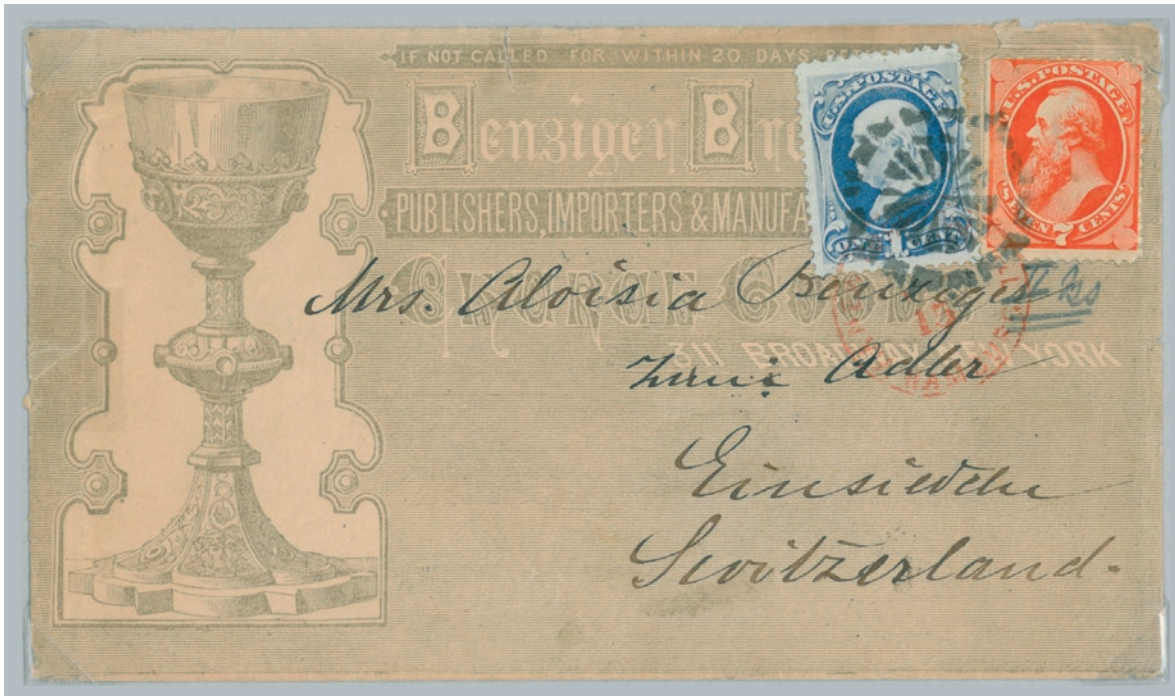 IF NOT CALLED FOR WITHIN 20 DAYS
Benziger
PUBLISHERS, IMPORTERS & MANUFA
311 BROADWAY NEW YORK
U.S. POSTAGE
ONE 1 CENT
U.S. POSTAGE
SEVEN 7 CENTS
13
Mrs. Aloisia Benziger
Adler
Einsiedeln
Switzerland.